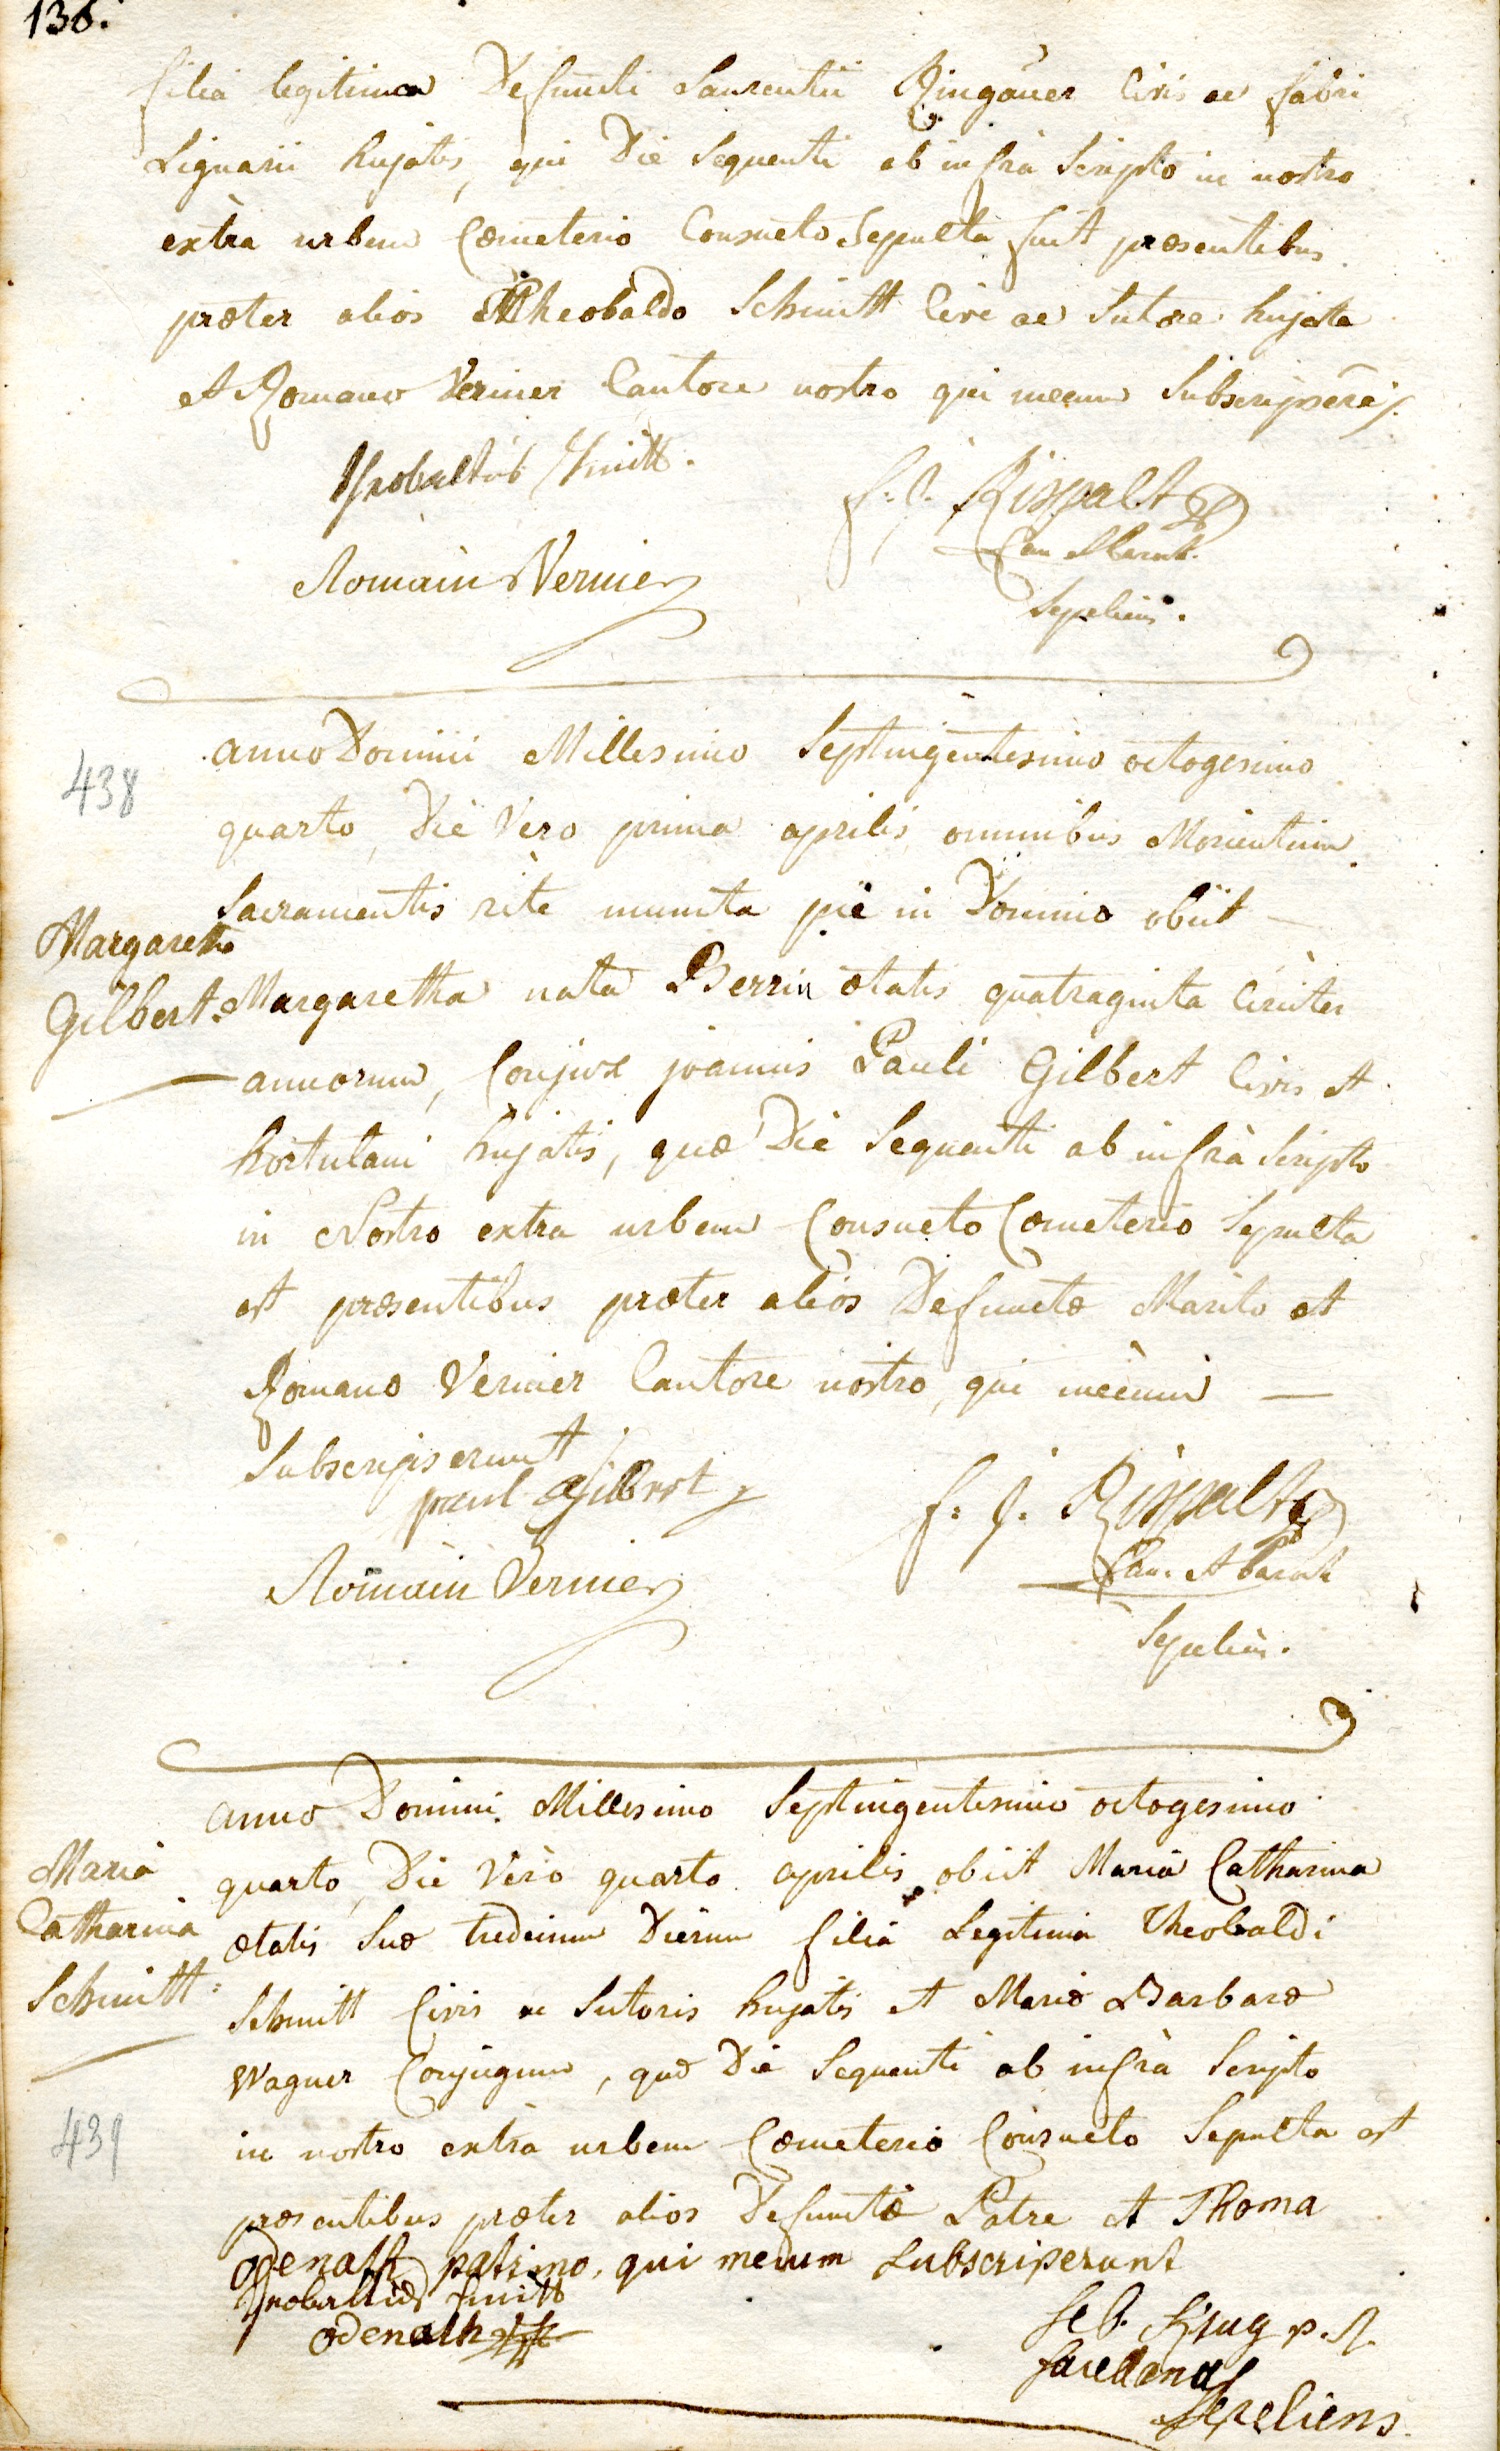 136.
filia legitima Defuncti Laurentii Ringauer Civis ac fabri
Lignarii hujatis, qui Die Sequenti ab infrà Scripto in nostro
extra urbem Cœmeterio Consueto Sepulta fuit præsentibus
præter alios Theobaldo Schmitt Cive ac Sutore hujate
et Romano Vernier Cantore nostro qui mecum Subscripserū̄t.
Theobaltus Schmitt.
f. j. Risspalt
Can
Romain Vernier
Sepeliens.
438
anno Domini Millesimo Septingentesimo octogesimo
quarto, Die Vero prima aprilis omnibus Morientium
Sacramentis rite munita piè in Domino obiit —
Margaretha
Gilbert.
Margaretha nata Berrin ætatis quatraginta Circiter
annorum, Conjux joannis Pauli Gilbert Civis et
hortulani hujatis, quæ Die Sequenti ab infrà Scripto
in Nostro extra urbem Consueto Cœmeterio Sepulta
est præsentibus præter aliòs Defunctæ Marito et
Romano Vernier Cantore nostro, qui mecum —
Subscripserunt
paul Gilbert
f: j. Risspalt
Can. et
Romain Vernier
Sepeliens.
anno Domini Millesimo Septingentesimo octogesimo
Maria
Catharina
Schmitt:
quarto, Die Vero quarto aprilis obiit Maria Catharina
ætatis Suæ tredecim Dierum filia Legitima Theobaldi
Schmitt Civis ac Sutoris hujatis et Mariæ Barbaræ
Wagner Conjugum, quæ Die Sequenti ab infrà Scripto
439
in nostro extra urbem Cœmeterio Consueto Sepulta est
præsentibus præter alios Defunctæ Patre et Thoma
odenatt patrino, qui mecum Subscriperunt
Theobaltus Schmitt
odenath
Seb. Krug p. t.
Sacellanus
Sepeliens.